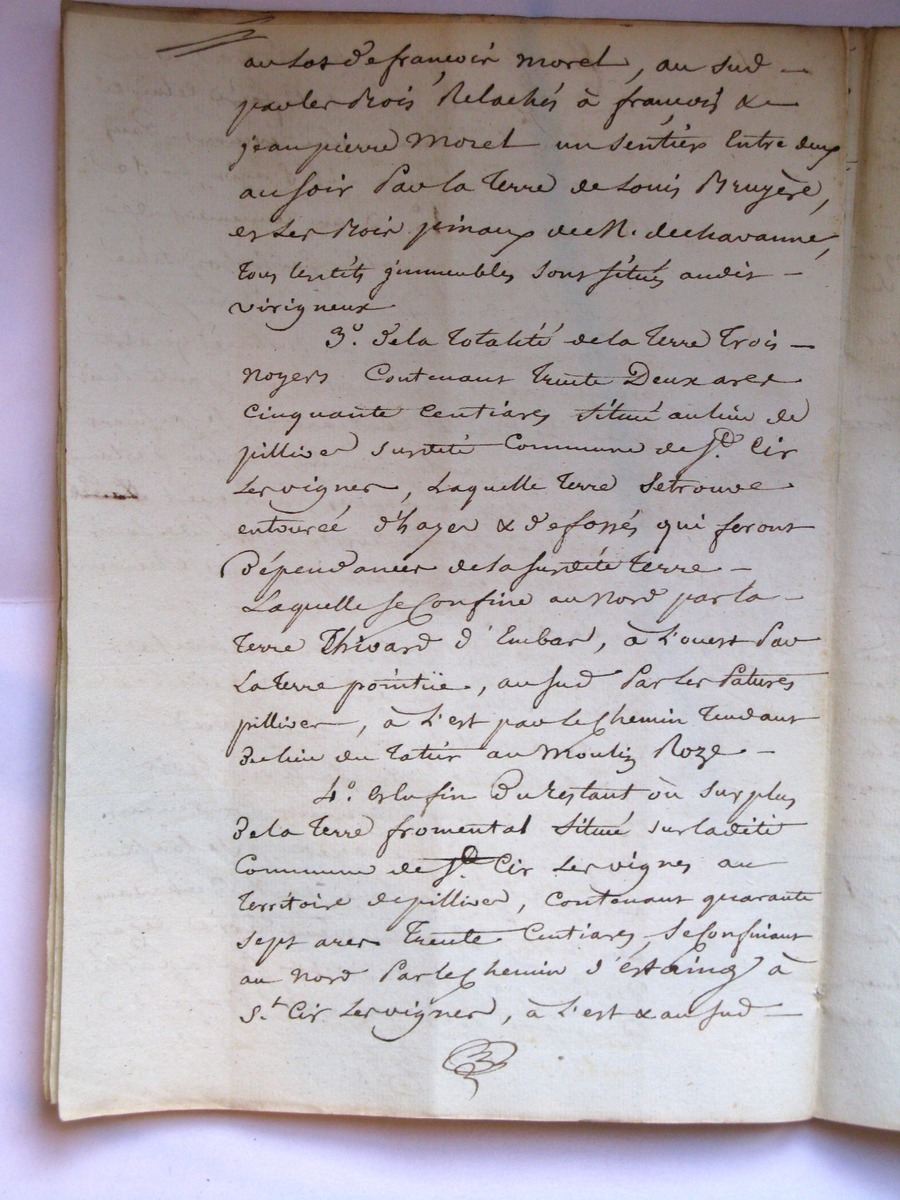 au lot de françois morel, au sud –
par les Bois Relachés à françois &
jean pierre Morel un Sentier Entre deux
au soir Par la Terre de Louis Bruyère,
et les Bois pinaux de M. de chavanne,
tous lesdits jmmeubles sont situés audit –
virigneux
3.º de la Totalité de la Terre Trois –
Noyers Contenant Trente Deux ares
Cinquante Centiares Situé au lieu de
pillivet susdité Commune de St. Cir
Les vignes, Laquelle Terre se trouve
entourée d'hayes & de fossés qui feront
Dépendances de la susdité Terre –
Laquelle se Confine au Nord par la –
Terre Thivard d'Embar, à L'ouest Par
La Terre pointüe, au sud Par les Patures
pilliver, à L'est par le Chemin Tendant
du lieu du au Moulin Roze –
4.º Et enfin Du Restant où surplus
de la Terre fromental Situé sur ladite
Commune de St. Cir Les vignes au
Territoire de pilliver, Contenant quarante
sept ares Trente Centiares, se Confinant
au Nord Par le Chemin d'estaing à
St. Cir Les vignes, à L'est & au sud –